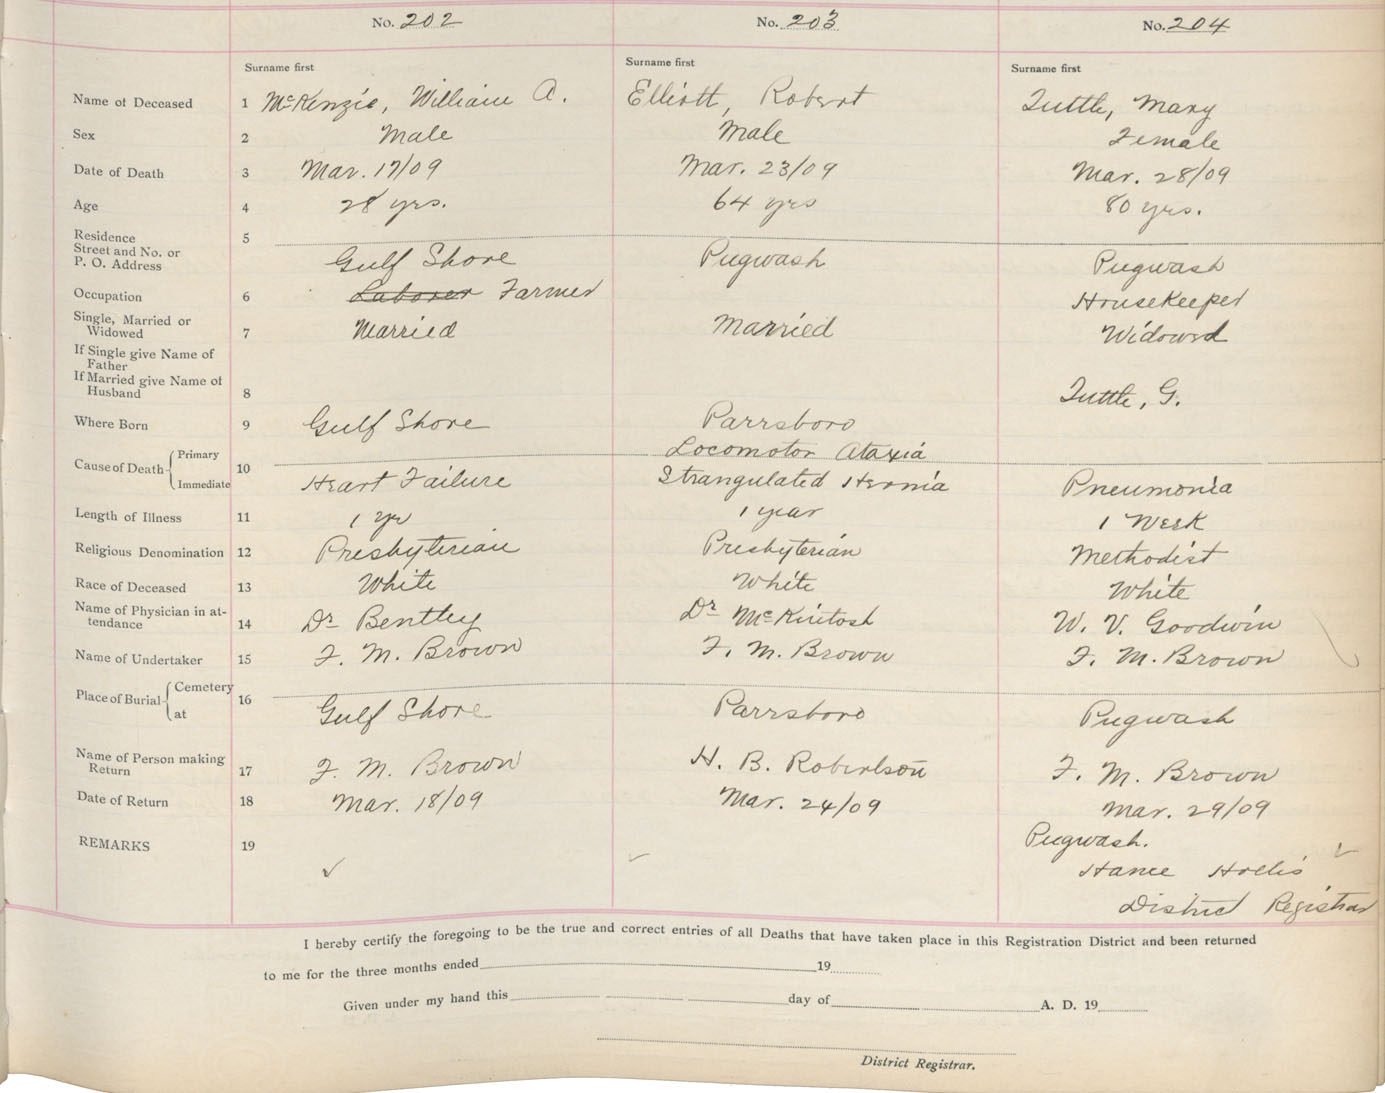 No. 202 No. 203 No. 204
Surname first Surname first Surname first
Name of Deceased 1 McKenzie, William A. Elliott, Robert Tuttle, Mary
Sex 2 Male Male Female
Date of Death 3 Mar. 17/09 Mar. 23/09 Mar. 28/09
Age 4 28 yrs. 64 yrs 80 yrs.
Residence 5
Street and No. or
P. O. Address Gulf Shore Pugwash Pugwash
Occupation 6 Laborer Farmer Housekeeper
Single, Married or
Widowed 7 Married Married Widowed
If Single give Name of
Father
If Married give Name of
Husband 8 Tuttle, G.
Where Born 9 Gulf Shore Parrsboro
Cause of Death Primary Locomotor Ataxia
10
Immediate Heart Failure Strangulated Hernia Pneumonia
Length of Illness 11 1 yr 1 year 1 Week
Religious Denomination 12 Presbyterian Presbyterian Methodist
Race of Deceased 13 White White White
Name of Physician in at-
tendance 14 Dr Bentley Dr McKintosh W. V. Goodwin
Name of Undertaker 15 F. M. Brown F. M. Brown F. M. Brown
Place of Burial Cemetery 16
at Gulf Shore Parrsboro Pugwash
Name of Person making
Return 17 F. M. Brown H. B. Robertson F. M. Brown
Date of Return 18 Mar. 18/09 Mar. 24/09 Mar. 29/09
REMARKS 19 Pugwash.
Hance Hollis
District Registrar
I hereby certify the foregoing to be the true and correct entries of all Deaths that have taken place in this Registration District and been returned
to me for the three months ended 19
Given under my hand this day of A. D. 19
District Registrar.